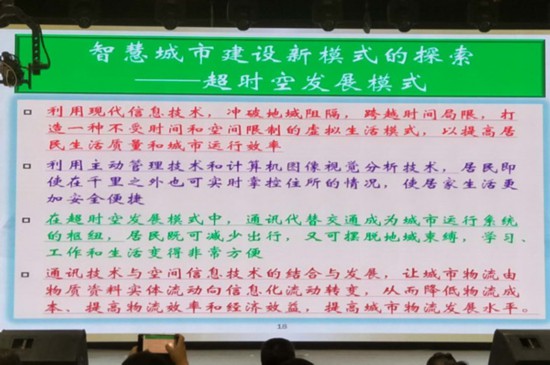 智慧城市建设新模式的探索
——超时空发展模式
利用现代信息技术，冲破地域阻隔，跨越时间局限，打
造一种不受时间和空间限制的虚拟生活模式，以提高居
民生活质量和城市运行效率
利用主动管理技术和计算机图像视觉分析技术，居民即
使在千里之外也可实时掌控住所的情况，使居家生活更
加安全便捷
在超时空发展模式中，通讯代替交通成为城市运行系统
的枢纽，居民既可减少出行，又可摆脱地域束缚，学习、
工作和生活变得非常方便
通讯技术与空间信息技术的结合与发展，让城市物流由
物质资料实体流动向信息化流动转变，从而降低物流成
本、提高物流效率和经济效益，提高城市物流发展水平。
18